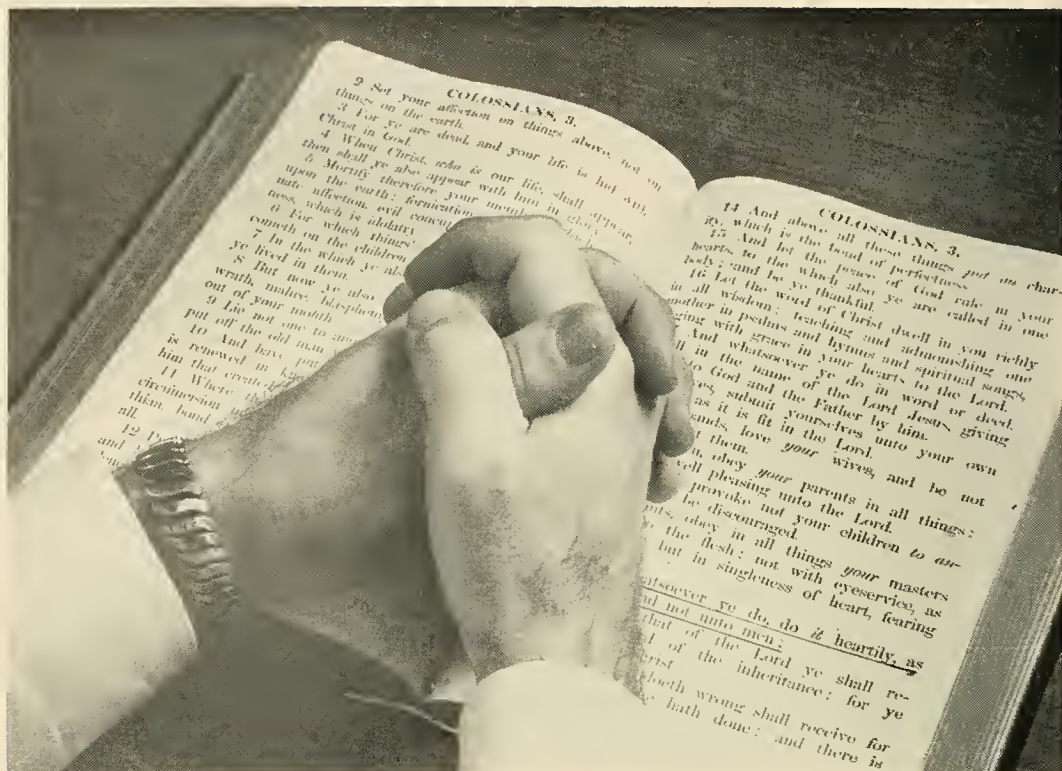 COLOSSIANS, 3.
2 Set your affection on things above, not on
things on the earth.
3 For ye are dead, and your life is hid with
Christ in God.
4 When Christ, who is our life, shall appear,
then shall ye also appear with him in glory.
5 Mortify therefore your
upon the earth; fornication
nate affection, evil
ness, which is idolatry
6 For which things'
cometh on the children
7 In the which ye
ye lived in them.
8 But now ye also
wrath, malice,
out of your mouth
9 Lie not one to
put off the old man
10 And have put
is renewed in
him that created
11 Where
circumcision
thian, bond
all.
12
and
COLOSSIANS, 3.
14 And above all these things put on char-
ity, which is the bond of perfectness.
15 And let the peace of God rule in your
hearts, to the which also ye are called in one
body; and be ye thankful.
16 Let the word of Christ dwell in you richly
in all wisdom; teaching and admonishing one
another in psalms and hymns and spiritual songs,
ging with grace in your hearts to the Lord.
And whatsoever ye do in word or deed,
ll in the name of the Lord Jesus, giving
to God and the Father by him.
es, submit yourselves unto your own
as it is fit in the Lord.
ands, love your wives, and be not
t them.
n, obey your parents in all things:
well pleasing unto the Lord.
provoke not your children to an-
be discouraged.
nts, obey in all things your masters
the flesh; not with eyeservice, as
but in singleness of heart, fearing
atsoever ye do, do it heartily, as
nd not unto men;
that of the Lord ye shall re-
d of the inheritance: for ye
hrist
doeth wrong shall receive for
hath done: and there is